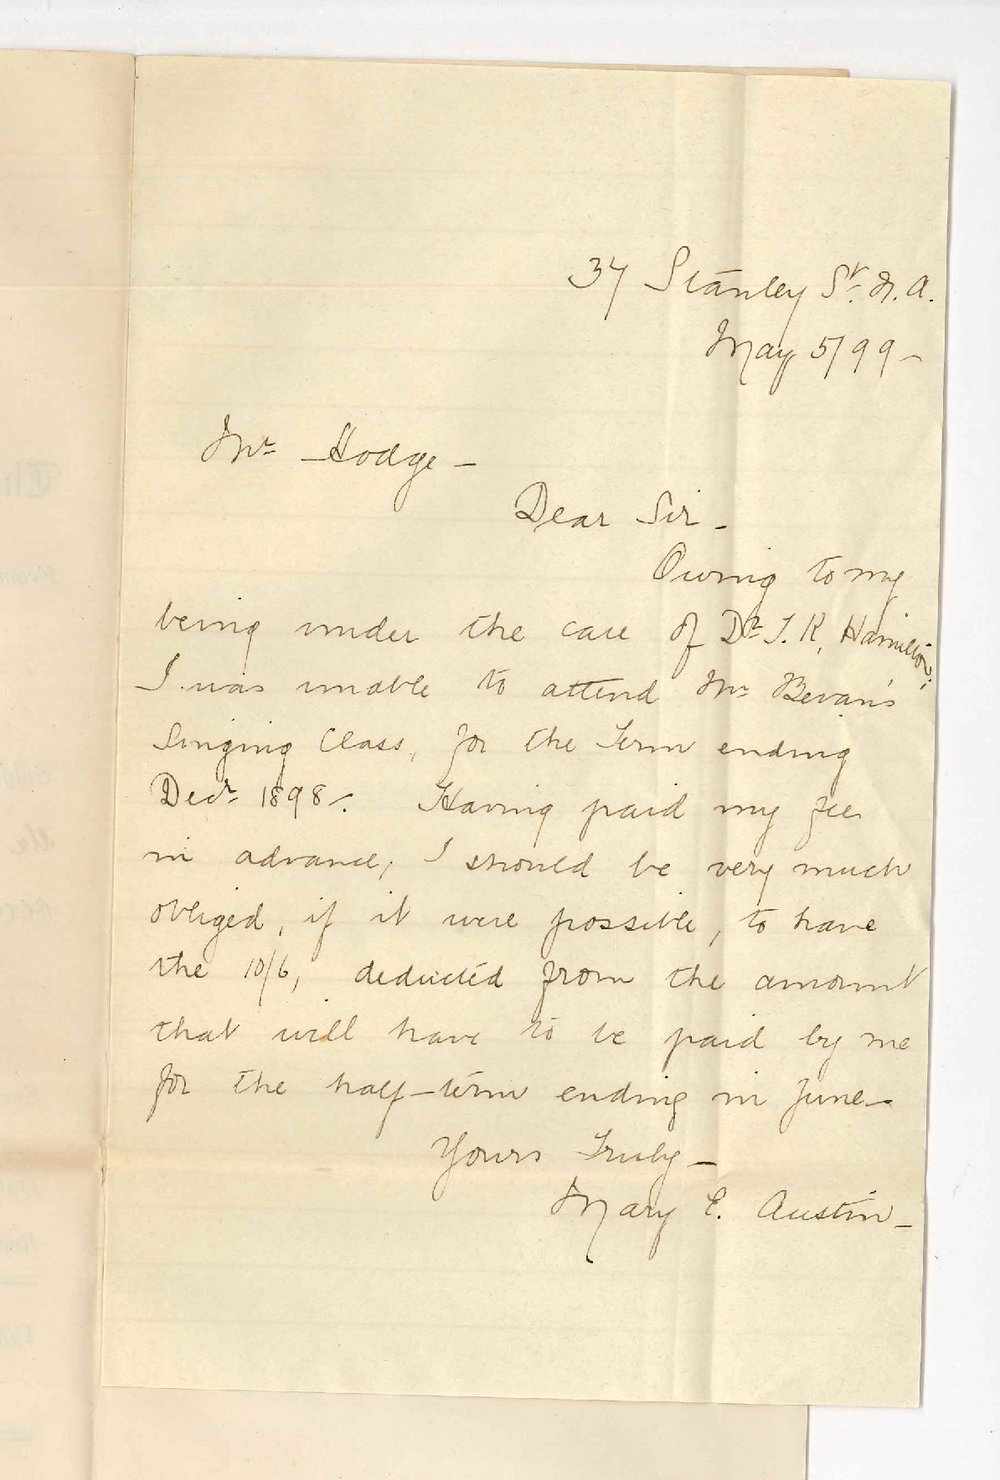 37 Stanley St. N. A.
May 5/99 -
Mr. Hodge -
Dear Sir -
Owing to my
being under the care of Dr. T. K. Hamilton,
I was unable to attend Mr. Bevan's
Singing Class, for the Term ending
Decr. 1898. Having paid my fee
in advance, I should be very much
obliged, if it were possible, to have
the 10/6, deducted from the amount
that will have to be paid by me
for the half-term ending in June -
Yours Truly -
Mary E. Austin -